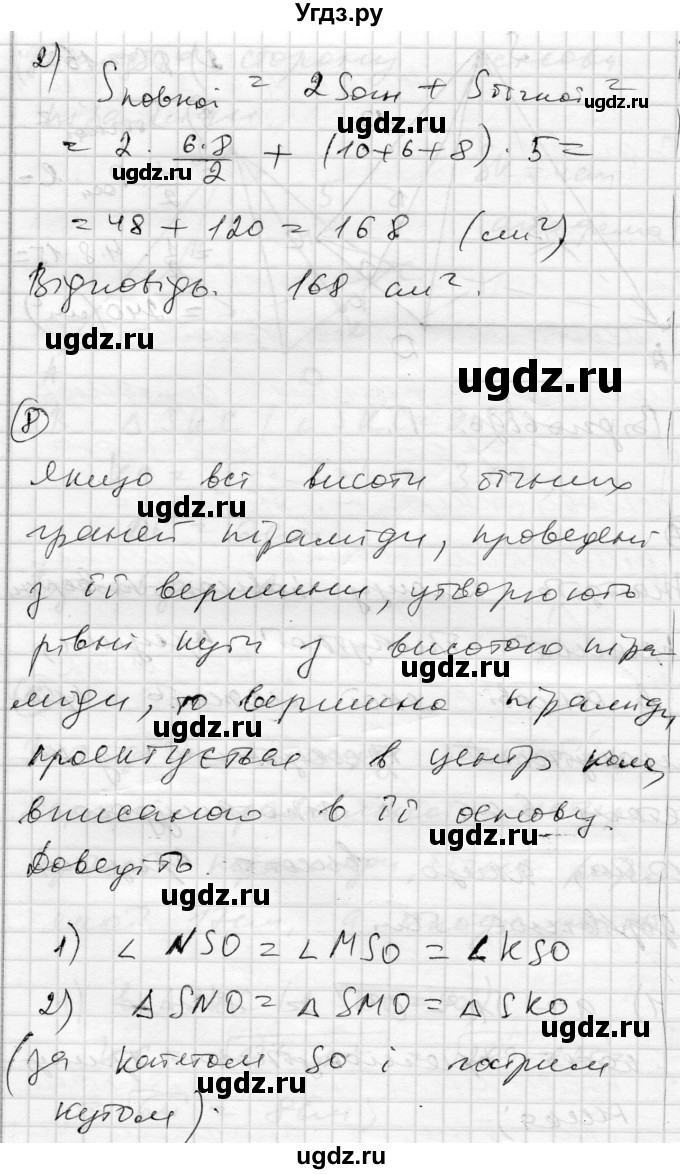 Угдз.ру
2) Sповної = 2Sосн + Sбічної =
ugdz.ru
ugdz.ru
= 2 · 6·8/2 + (10+6+8) · 5 =
ugdz.ru
= 48 + 120 = 168 (см²)
Відповідь. 168 см².
ugdz.ru
ugdz.ru
8
Якщо всі висоти бічних
ugdz.ru
граней піраміди, проведені
з її вершини, утворюють
рівні кути з висотою піра-
ugdz.ru
міди, то вершина піраміди
проектується в центр кола,
вписаного в її основу.
ugdz.ru
Доведіть.
ugdz.ru
1) ∠ NSO = ∠ MSO = ∠ KSO
2) Δ SNO = Δ SMO = Δ SKO
ugdz.ru
(за катетом SO і гострим
ugdz.ru
кутом).
ugdz.ru